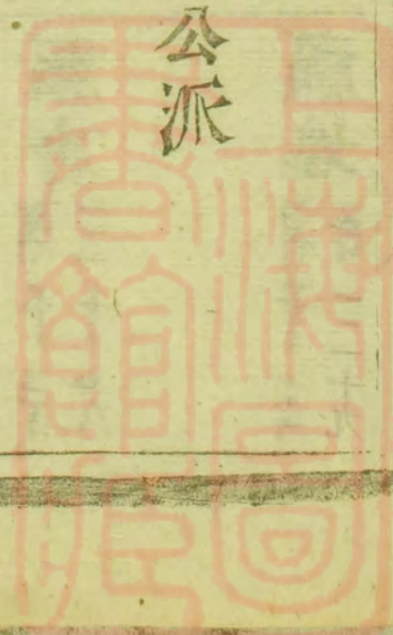 公派
上海圖
書館藏